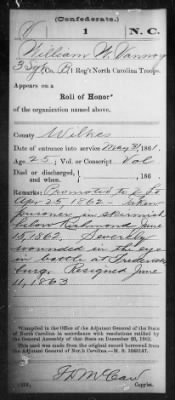 (Confederate.)
V 1 N. C.
William W. Vannoy
3 Sgt Co. B, 1 Reg't North Carolina Troops.
Appears on a
Roll of Honor*
of the organization named above.
County Wilkes
Date of entrance into service May 31, 1861.
Age 25, Vol. or Conscript Vol
Died or discharged,
and when, , 186 .
Remarks: Promoted to 2 Lt
Apr 25, 1862 - taken
prisoner in skirmish
below Richmond, June
1862. Severely
wounded in the eye
in battle at Fredericks
burg. Resigned June
11, 1863
*Compiled in the Office of the Adjutant General of the State
of North Carolina in accordance with resolutions ratified by
the General Assembly of that State on
This card was made from the original record borrowed from
the Adjutant General of North Carolina—R. & P.
McCaw
Copyist.